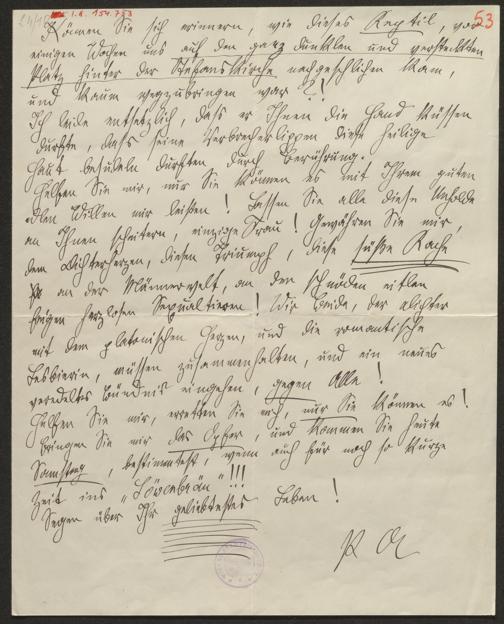 I.N. 154.753
53
Können Sie sich erinnern, wie dieses Reptil, vor
einigen Wochen uns auf den ganz dunklen und versteckten
Platz hinter der Stefanskirche nachgeschlichen kam,
und kaum wegzubringen war?!
Ich leide entsetzlich, dass er Ihnen die Hand küssen
durfte, dass seine Verbrecherlippen diese heilige
Haut besudeln durften durch Berührung.
Helfen Sie mir, nur Sie können es mit Ihrem guten
edlen Willen mir leisten! Lassen Sie alle diese Unholde
an Ihnen scheitern, einzige Frau! Gewähren Sie mir,
dem Dichterherzen, diesen Triumph, diese süße Rache
an der Männerwelt, an den schnöden eitlen
feigen herzlosen Sexualtieren! Wir Beide, der Dichter
mit dem platonischen Herzen, und die romantische
Lesbierin, müssen zusammenhalten, und ein neues
veredeltes Bündnis eingehen, gegen Alle!
Helfen Sie mir, erretten Sie mich, nur Sie können es!
Bringen Sie mir das Opfer, und kommen Sie heute
Samstag, bestimmtest, wenn auch für noch so kurze
Zeit ins „Löwenbräu"!!!
Segen über Ihr geliebtestes Leben!
P A